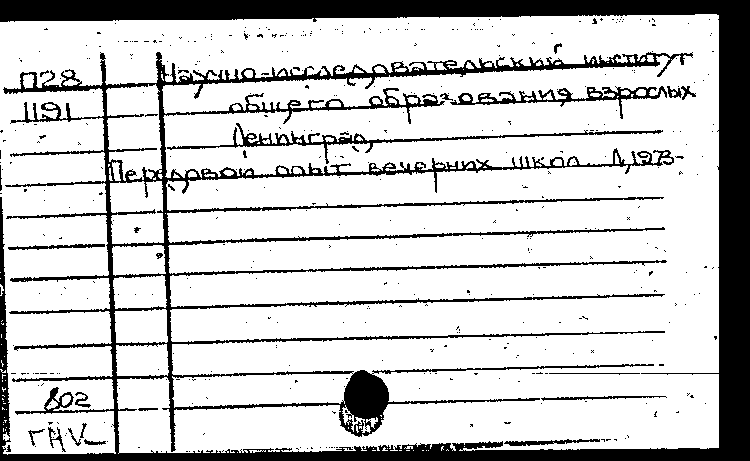 П28
1191
Научно-исследовательский институт
общего образования взрослых
Ленинград,
Передовой опыт вечерних школ. Л, 1973-
802